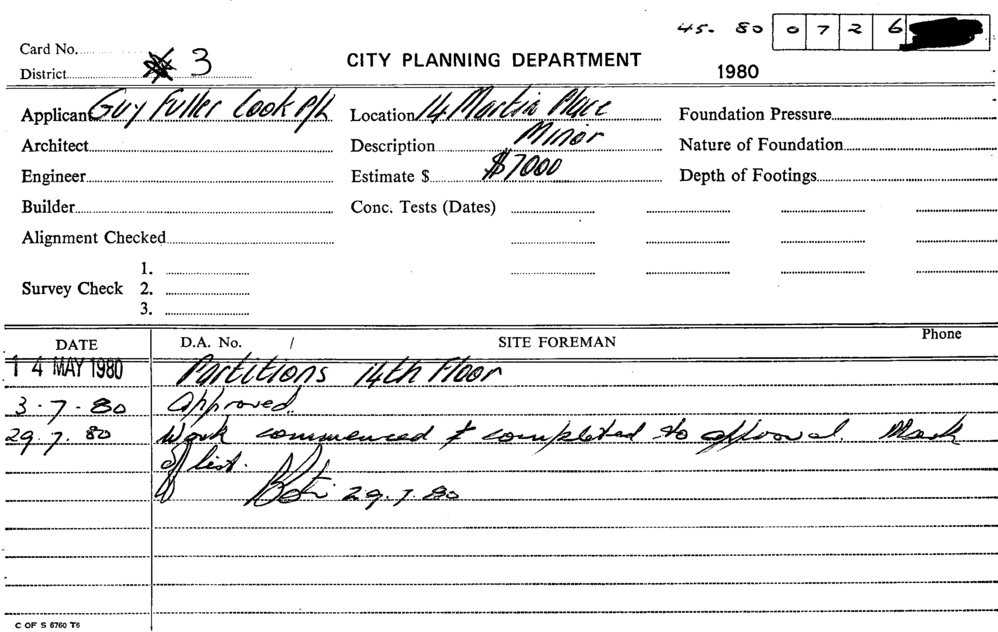 45. 80 0 7 2 6
Card No.
District 3
CITY PLANNING DEPARTMENT
1980
Applicant Guy Fuller Cook P/L
Location 14 Martin Place
Foundation Pressure
Architect
Description Minor
Nature of Foundation
Engineer
Estimate $ $7000
Depth of Footings
Builder
Conc. Tests (Dates)
Alignment Checked
1.
Survey Check 2.
3.
DATE D.A. No. / SITE FOREMAN Phone
14 MAY 1980 Partitions 14th Floor
3.7.80 Approved.
29.7.80 Work commenced & completed to approval. Mark
of list.
29.7.80
C OF S 6760 T6